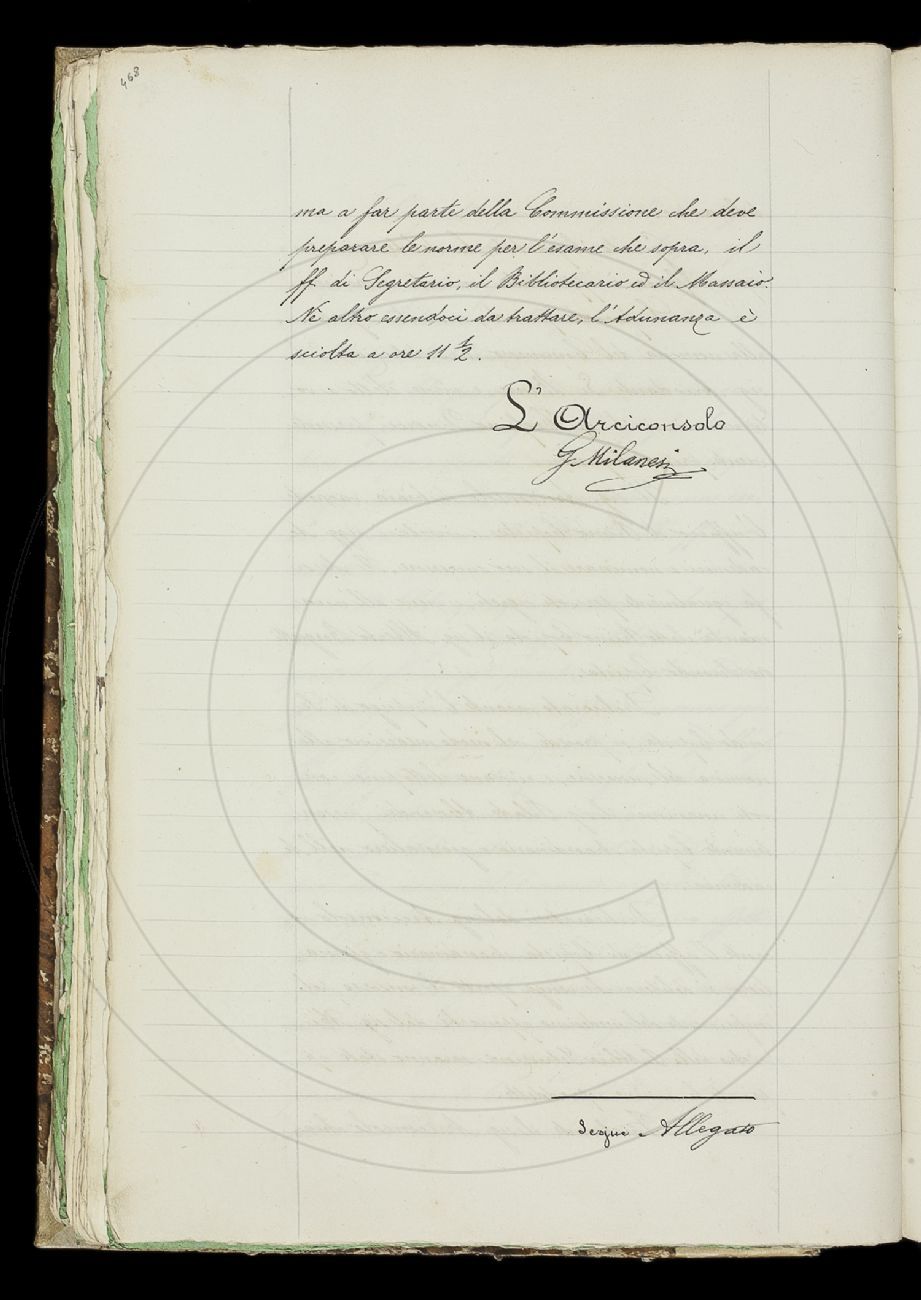 468
ma a far parte della Commissione che deve
preparare le norme per l'esame che sopra, il
ff. di Segretario, il Bibliotecario ed il Massaio.
Nè altro essendoci da trattare, l'Adunanza è
sciolta a ore 11 1/2.
L'Arciconsolo
G Milanesi
Segue Allegato